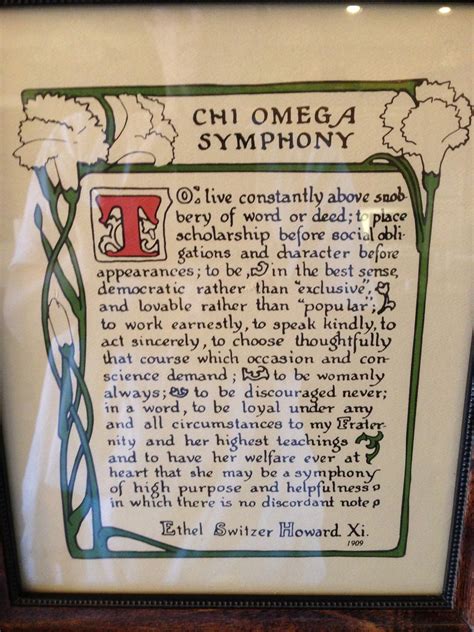 CHI OMEGA
SYMPHONY
TO live constantly above snob
bery of word or deed; to place
scholarship before social obli
gations and character before
appearances; to be, in the best sense,
democratic rather than "exclusive",
and lovable rather than "popular";
to work earnestly, to speak kindly, to
act sincerely, to choose thoughtfully
that course which occasion and con-
science demand; to be womanly
always; to be discouraged never;
in a word, to be loyal under any
and all circumstances to my Frater-
nity and her highest teachings
and to have her welfare ever at
heart that she may be a symphony
of high purpose and helpfulness
in which there is no discordant note
Ethel Switzer Howard Xi.
1909